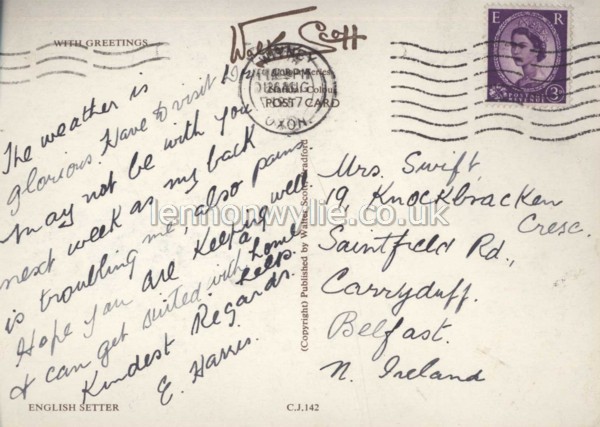 WITH GREETINGS
Walter Scott
POST CARD
OXON.
E R
3D
The weather is
glorious. Have to visit
may not be with you
next week as my back
is troubling me, also pains
Hope you are keeping well
& can get suited with a home
help.
Kindest Regards.
E. Harris.
(Copyright) Published by Walter Scott, Bradford
Mrs. Swift,
19, Knockbracken
Cresc.
Saintfield Rd.,
Carryduff.
Belfast.
N. Ireland
lennonwylie.co.uk
ENGLISH SETTER
C.J,142